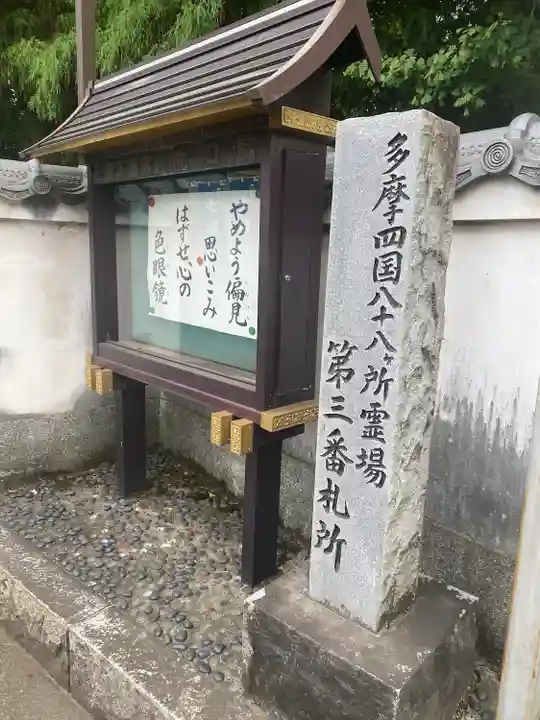 多摩四国八十八ヶ所霊場
第三番札所
やめよう偏見
思いこみ
はずせ、心の
色眼鏡